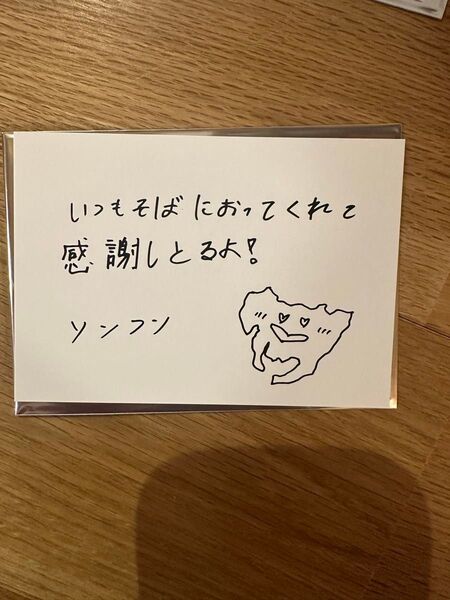 いつもそばにおってくれて
感謝しとるよ!
ソンフン